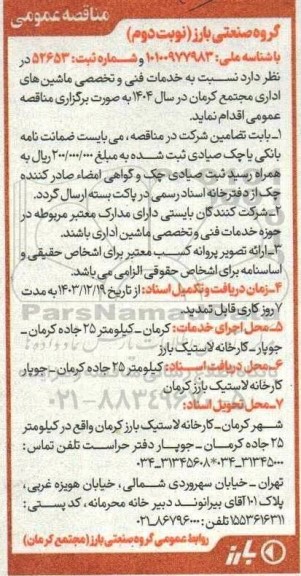 مناقصه عمومی
گروه صنعتی بارز (نوبت دوم)
با شناسه ملی: ۱۰۱۰۰۹۷۷۹۸۳ و شماره ثبت: ۵۲۶۵۳ در
نظر دارد نسبت به خدمات فنی و تخصصی ماشین های
اداری مجتمع کرمان در سال ۱۴۰۴ به صورت برگزاری مناقصه
عمومی اقدام نماید.
۱_بابت تضامین شرکت در مناقصه ، می بایست ضمانت نامه
بانکی یا چک صیادی ثبت شده به مبلغ ۲۰۰/۰۰۰/۰۰۰ ریال به
همراه رسید ثبت صیادی چک و گواهی امضاء صادر کننده
چک از دفترخانه اسناد رسمی در پاکت بسته ارسال گردد.
۲_شرکت کنندگان بایستی دارای مدارک معتبر مربوطه در
حوزه خدمات فنی و تخصصی ماشین اداری باشند.
۳_ارائه تصویر پروانه کسب معتبر برای اشخاص حقیقی و
اساسنامه برای اشخاص حقوقی الزامی می باشد.
۴_زمان دریافت و تکمیل اسناد: از تاریخ ۱۴۰۳/۱۲/۱۹ به مدت
۷ روز کاری قابل تمدید.
۵_محل اجرای خدمات: کرمان _ کیلومتر ۲۵ جاده کرمان _
جوپار _ کارخانه لاستیک بارز
۶_محل دریافت اسناد: کیلومتر ۲۵ جاده کرمان _ جوپار
کارخانه لاستیک بارز کرمان
۷_محل تحویل اسناد:
شهر کرمان _ کارخانه لاستیک بارز کرمان واقع در کیلومتر
۲۵ جاده کرمان _ جوپار دفتر حراست تلفن تماس :
۰۳۴_۳۱۳۴۵۶۰۸*۰۳۴_۳۱۳۴۵۰۰۰
تهران _ خیابان سهروردی شمالی ، خیابان هویزه غربی،
پلاک ۱۰۱ آقای بیرانوند دبیر خانه محرمانه ، کد پستی :
۱۵۵۳۶۱۶۳۱۱ تلفن : ۰۲۱_۸۶۷۹۶۰۰۰
روابط عمومی گروه صنعتی بارز (مجتمع کرمان)
بارز
ParsNamad
۰۲۱-۸۸۳۴۹۶۷۰